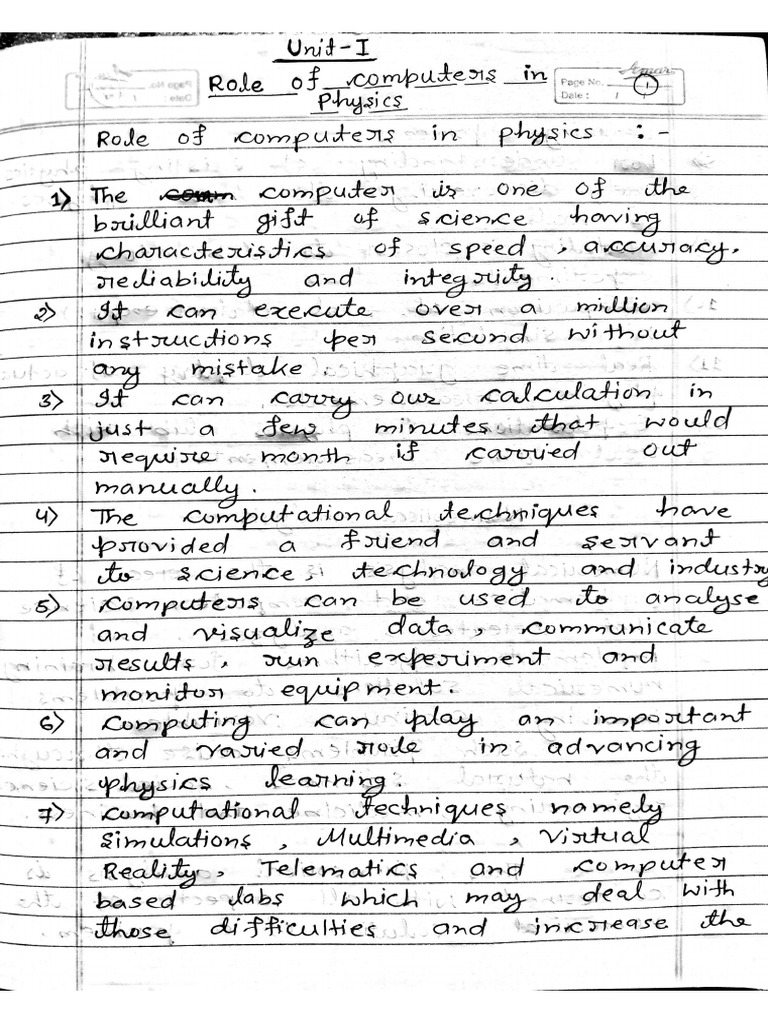 Unit-I
Role of computers in
Physics
Page No. 1
Date :
Role of computers in physics :-
1) The computer is one of the
brilliant gift of science having
characteristics of speed, accuracy,
reliability and integrity.
2) It can execute over a million
instructions per second without
any mistake.
3) It can carry our calculation in
just a few minutes that would
require month if carried out
manually.
4) The computational techniques have
provided a friend and servant
to science, technology and industry
5) Computers can be used to analyse
and visualize data, communicate
results, run experiment and
monitor equipment.
6) Computing can play an important
and varied role in advancing
physics learning.
7) Computational Techniques namely
Simulations, Multimedia, Virtual
Reality, Telematics and computer
based labs which may deal with
those difficulties and increase the